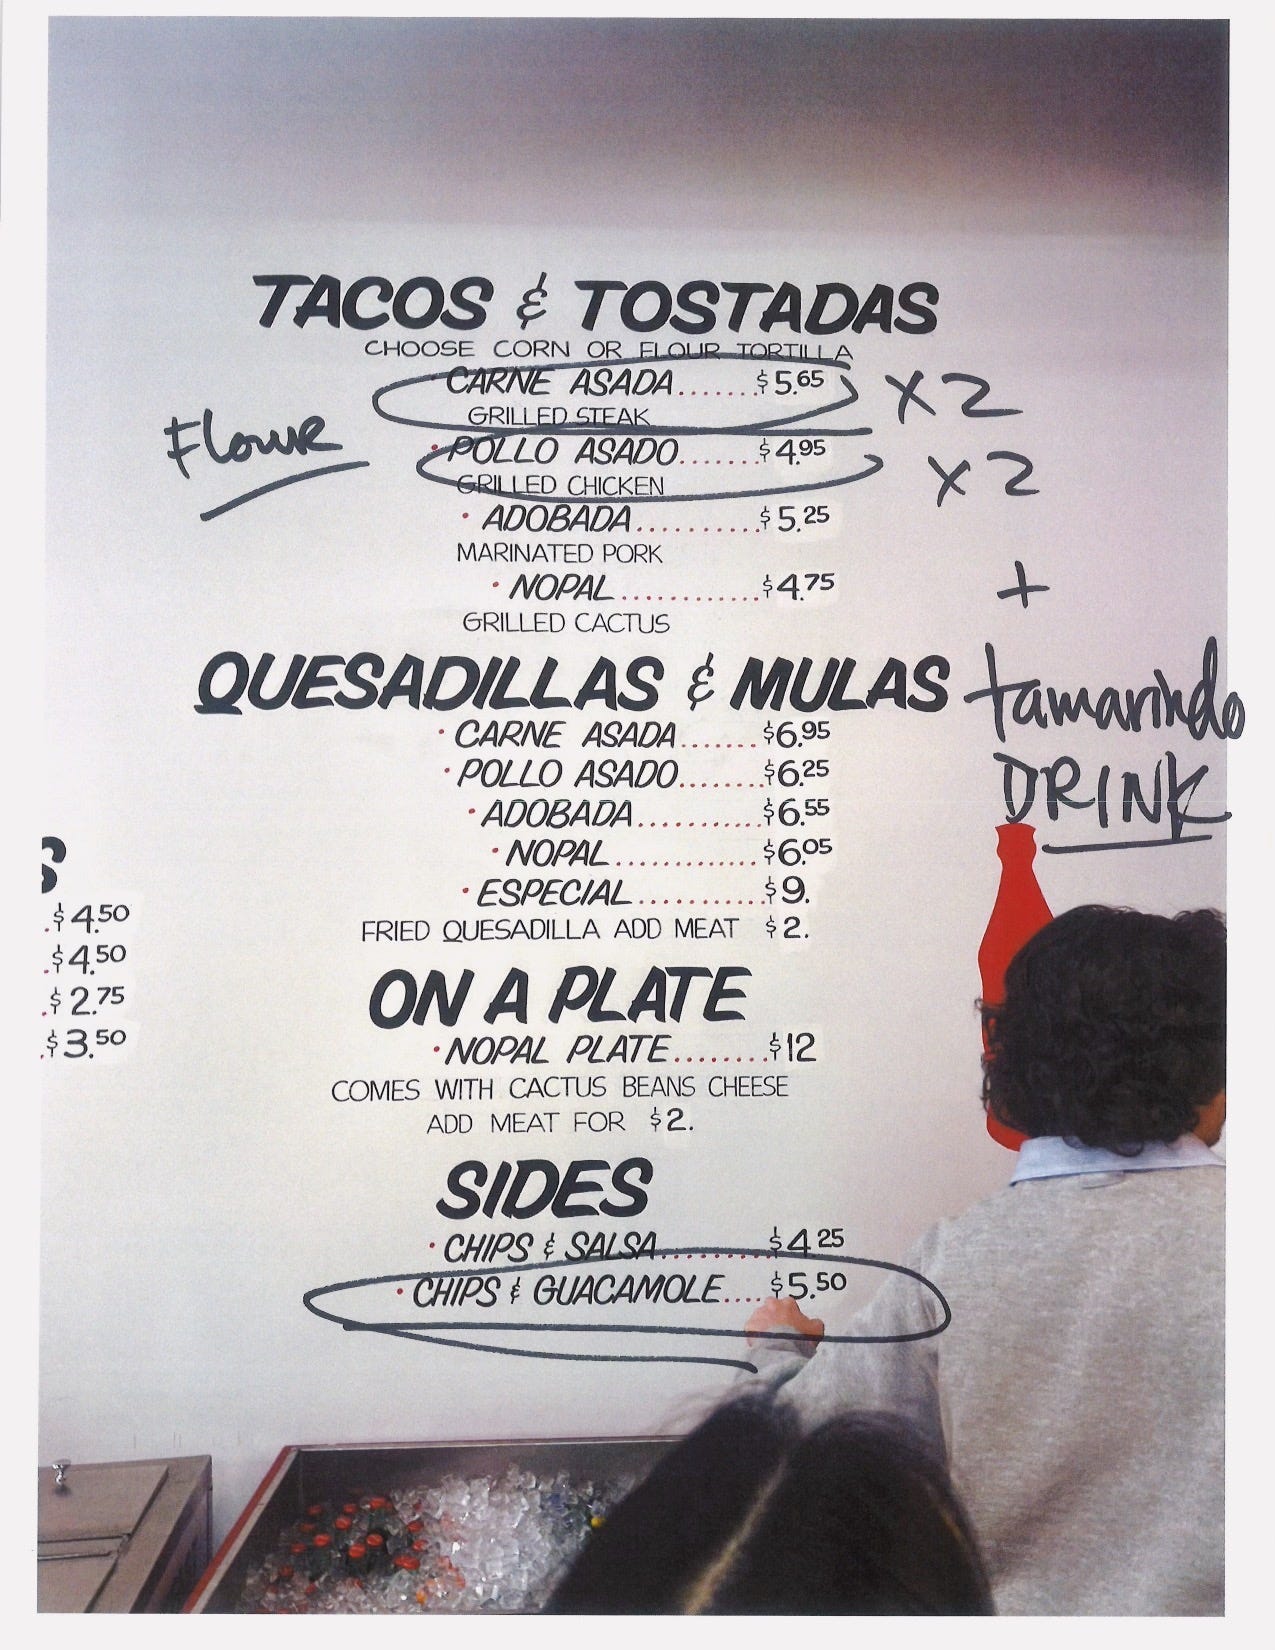 TACOS & TOSTADAS
CHOOSE CORN OR FLOUR TORTILLA
• CARNE ASADA.......$5.65 X2
GRILLED STEAK
Flour
• POLLO ASADO.......$4.95 X2
GRILLED CHICKEN
• ADOBADA..........$5.25
MARINATED PORK
• NOPAL............$4.75
+
GRILLED CACTUS
QUESADILLAS & MULAS
tamarindo
DRINK
• CARNE ASADA.......$6.95
• POLLO ASADO........$6.25
• ADOBADA...........$6.55
• NOPAL.............$6.05
• ESPECIAL...........$9.
FRIED QUESADILLA ADD MEAT $2.
S
.$4.50
.$4.50
.$2.75
.$3.50
ON A PLATE
• NOPAL PLATE........$12
COMES WITH CACTUS BEANS CHEESE
ADD MEAT FOR $2.
SIDES
• CHIPS & SALSA.........$4.25
• CHIPS & GUACAMOLE....$5.50